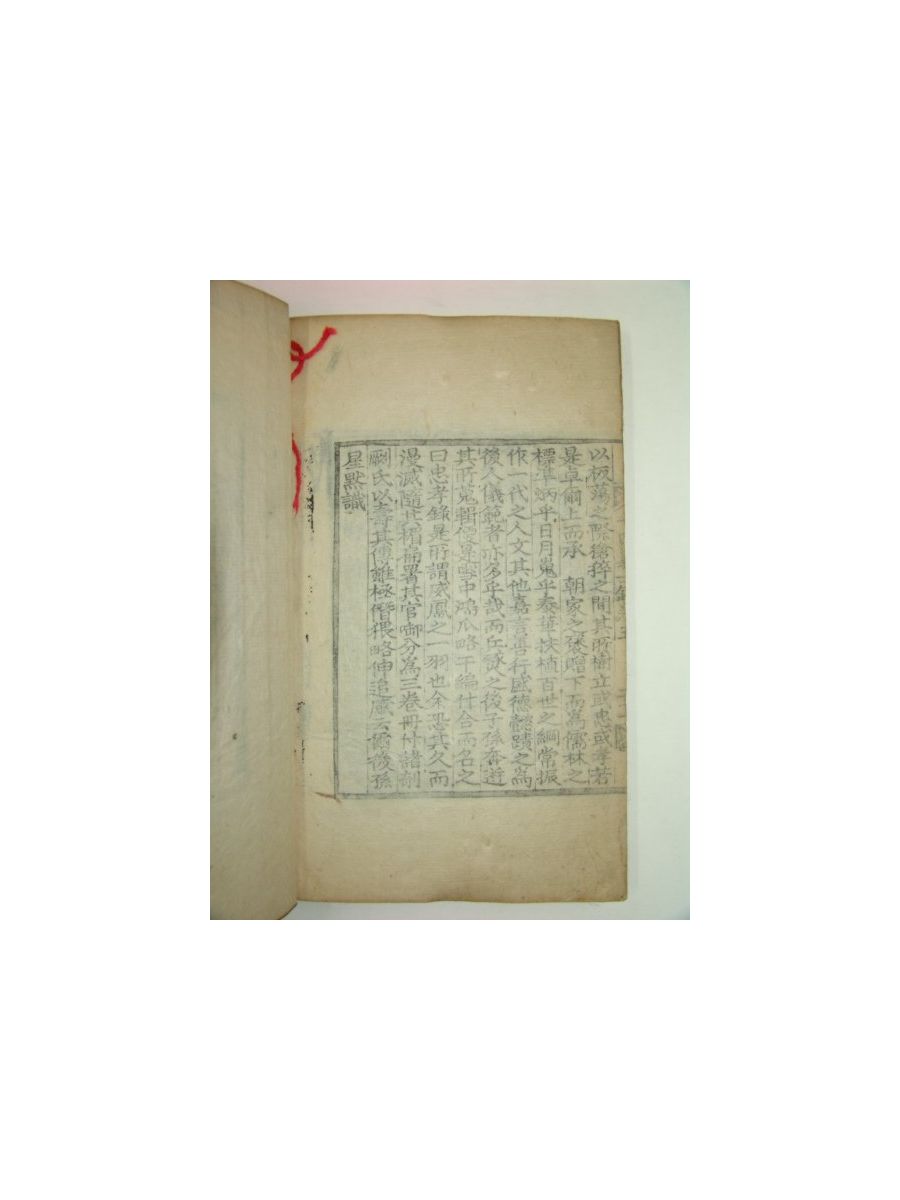 以板蕩之際搶猝之間其所樹立或忠或孝若
是卓爾上而承 朝家之褒贈下而爲儒林之
標準炳乎日月嵬乎泰華扶植百世之綱常振
作一代之人文其他嘉言善行匡德懿蹟之爲
後人儀範者亦多乎哉而丘 之後子孫奔逬
其所蒐輯便是雪中鴻爪略干編付合而名之
曰忠孝錄是所謂威鳳之一羽也余恐其久而
漫滅隨其 扁署其官啣分爲三卷冊付諸剞
劂氏以壽其傳雖極僭猥略伸追感云爾後孫
星默識